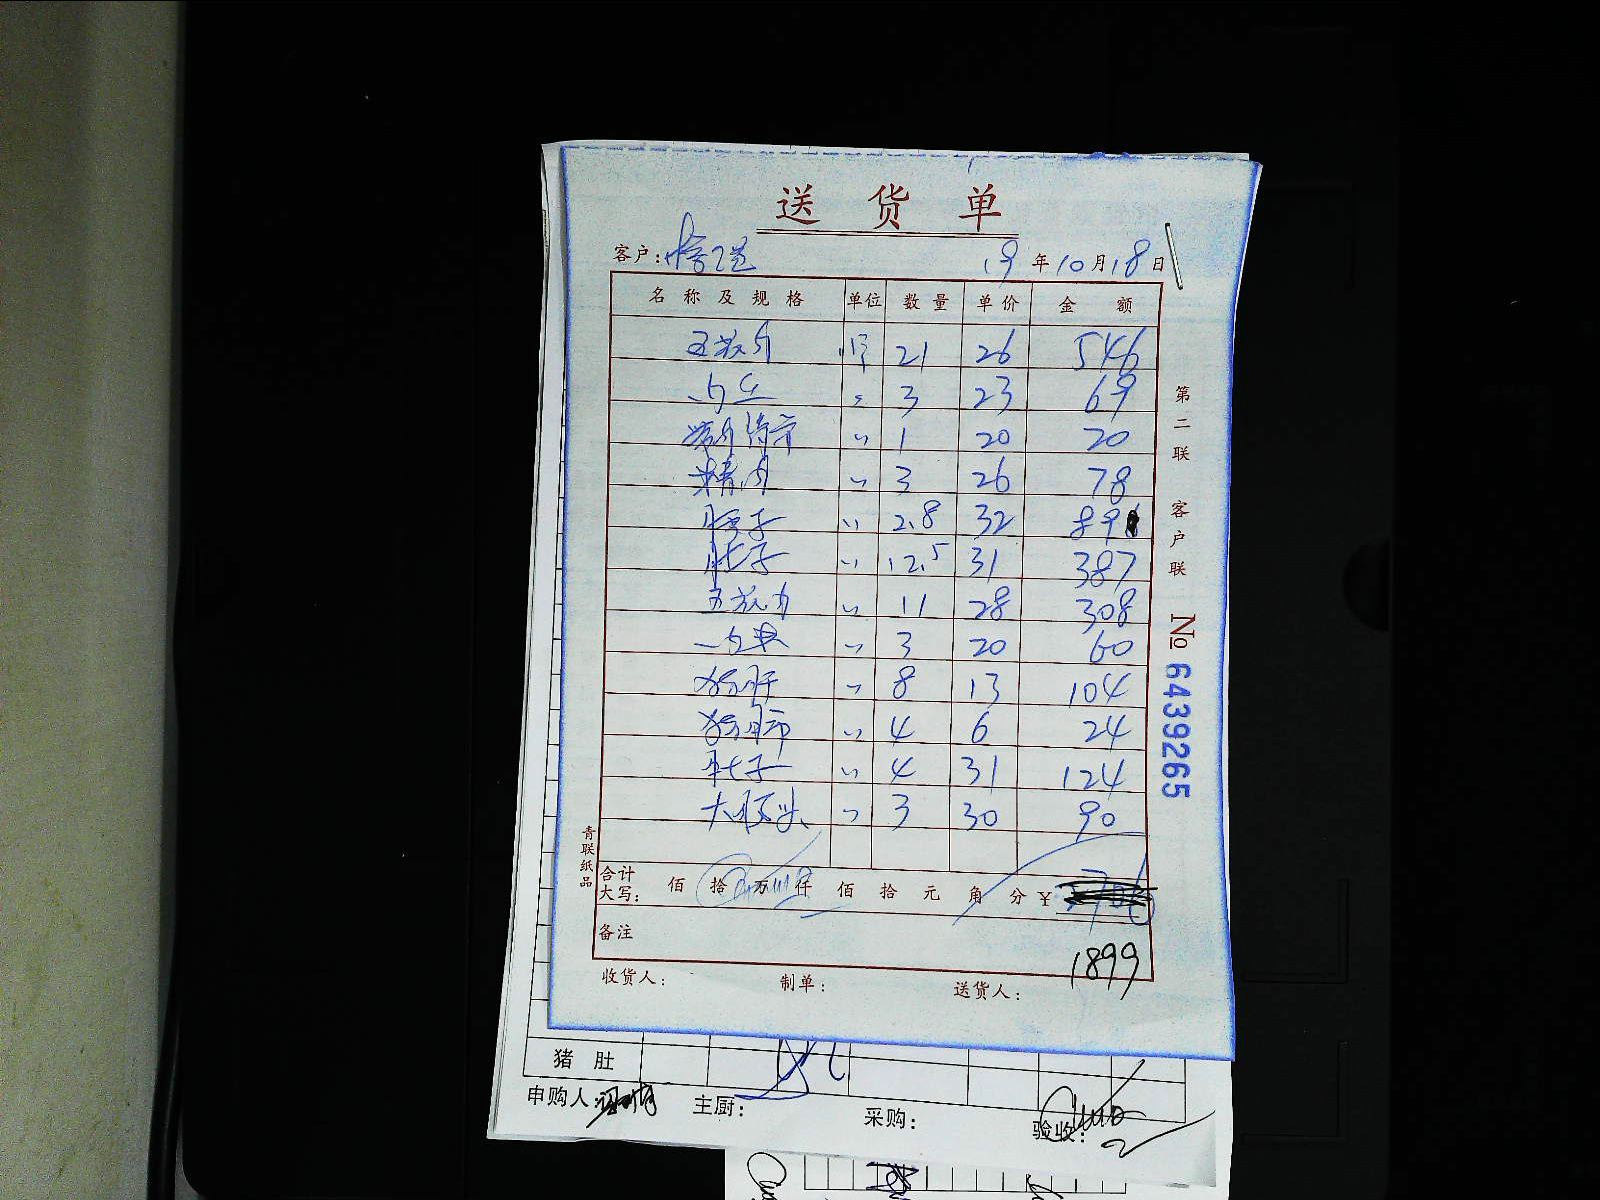 送货单
客户: 19年10月18日
名称及规格 单位 数量 单价 金额
五花肉 斤 21 26 546
肉 〃 3 23 69
〃 1 20 20
精肉 〃 3 26 78
〃 2.8 32 89
肚子 〃 12.5 31 387
五花肉 〃 11 28 308
〃 3 20 60
猪肝 〃 8 13 104
猪肺 〃 4 6 24
肚子 〃 4 31 124
大 头 〃 3 30 90
合计
大写: 佰 拾 万 仟 佰 拾 元 角 分 ¥
备注
1899
收货人: 制单: 送货人:
第二联 客户联
№ 6439265
青联纸品
猪肚
申购人: 主厨: 采购: 验收: